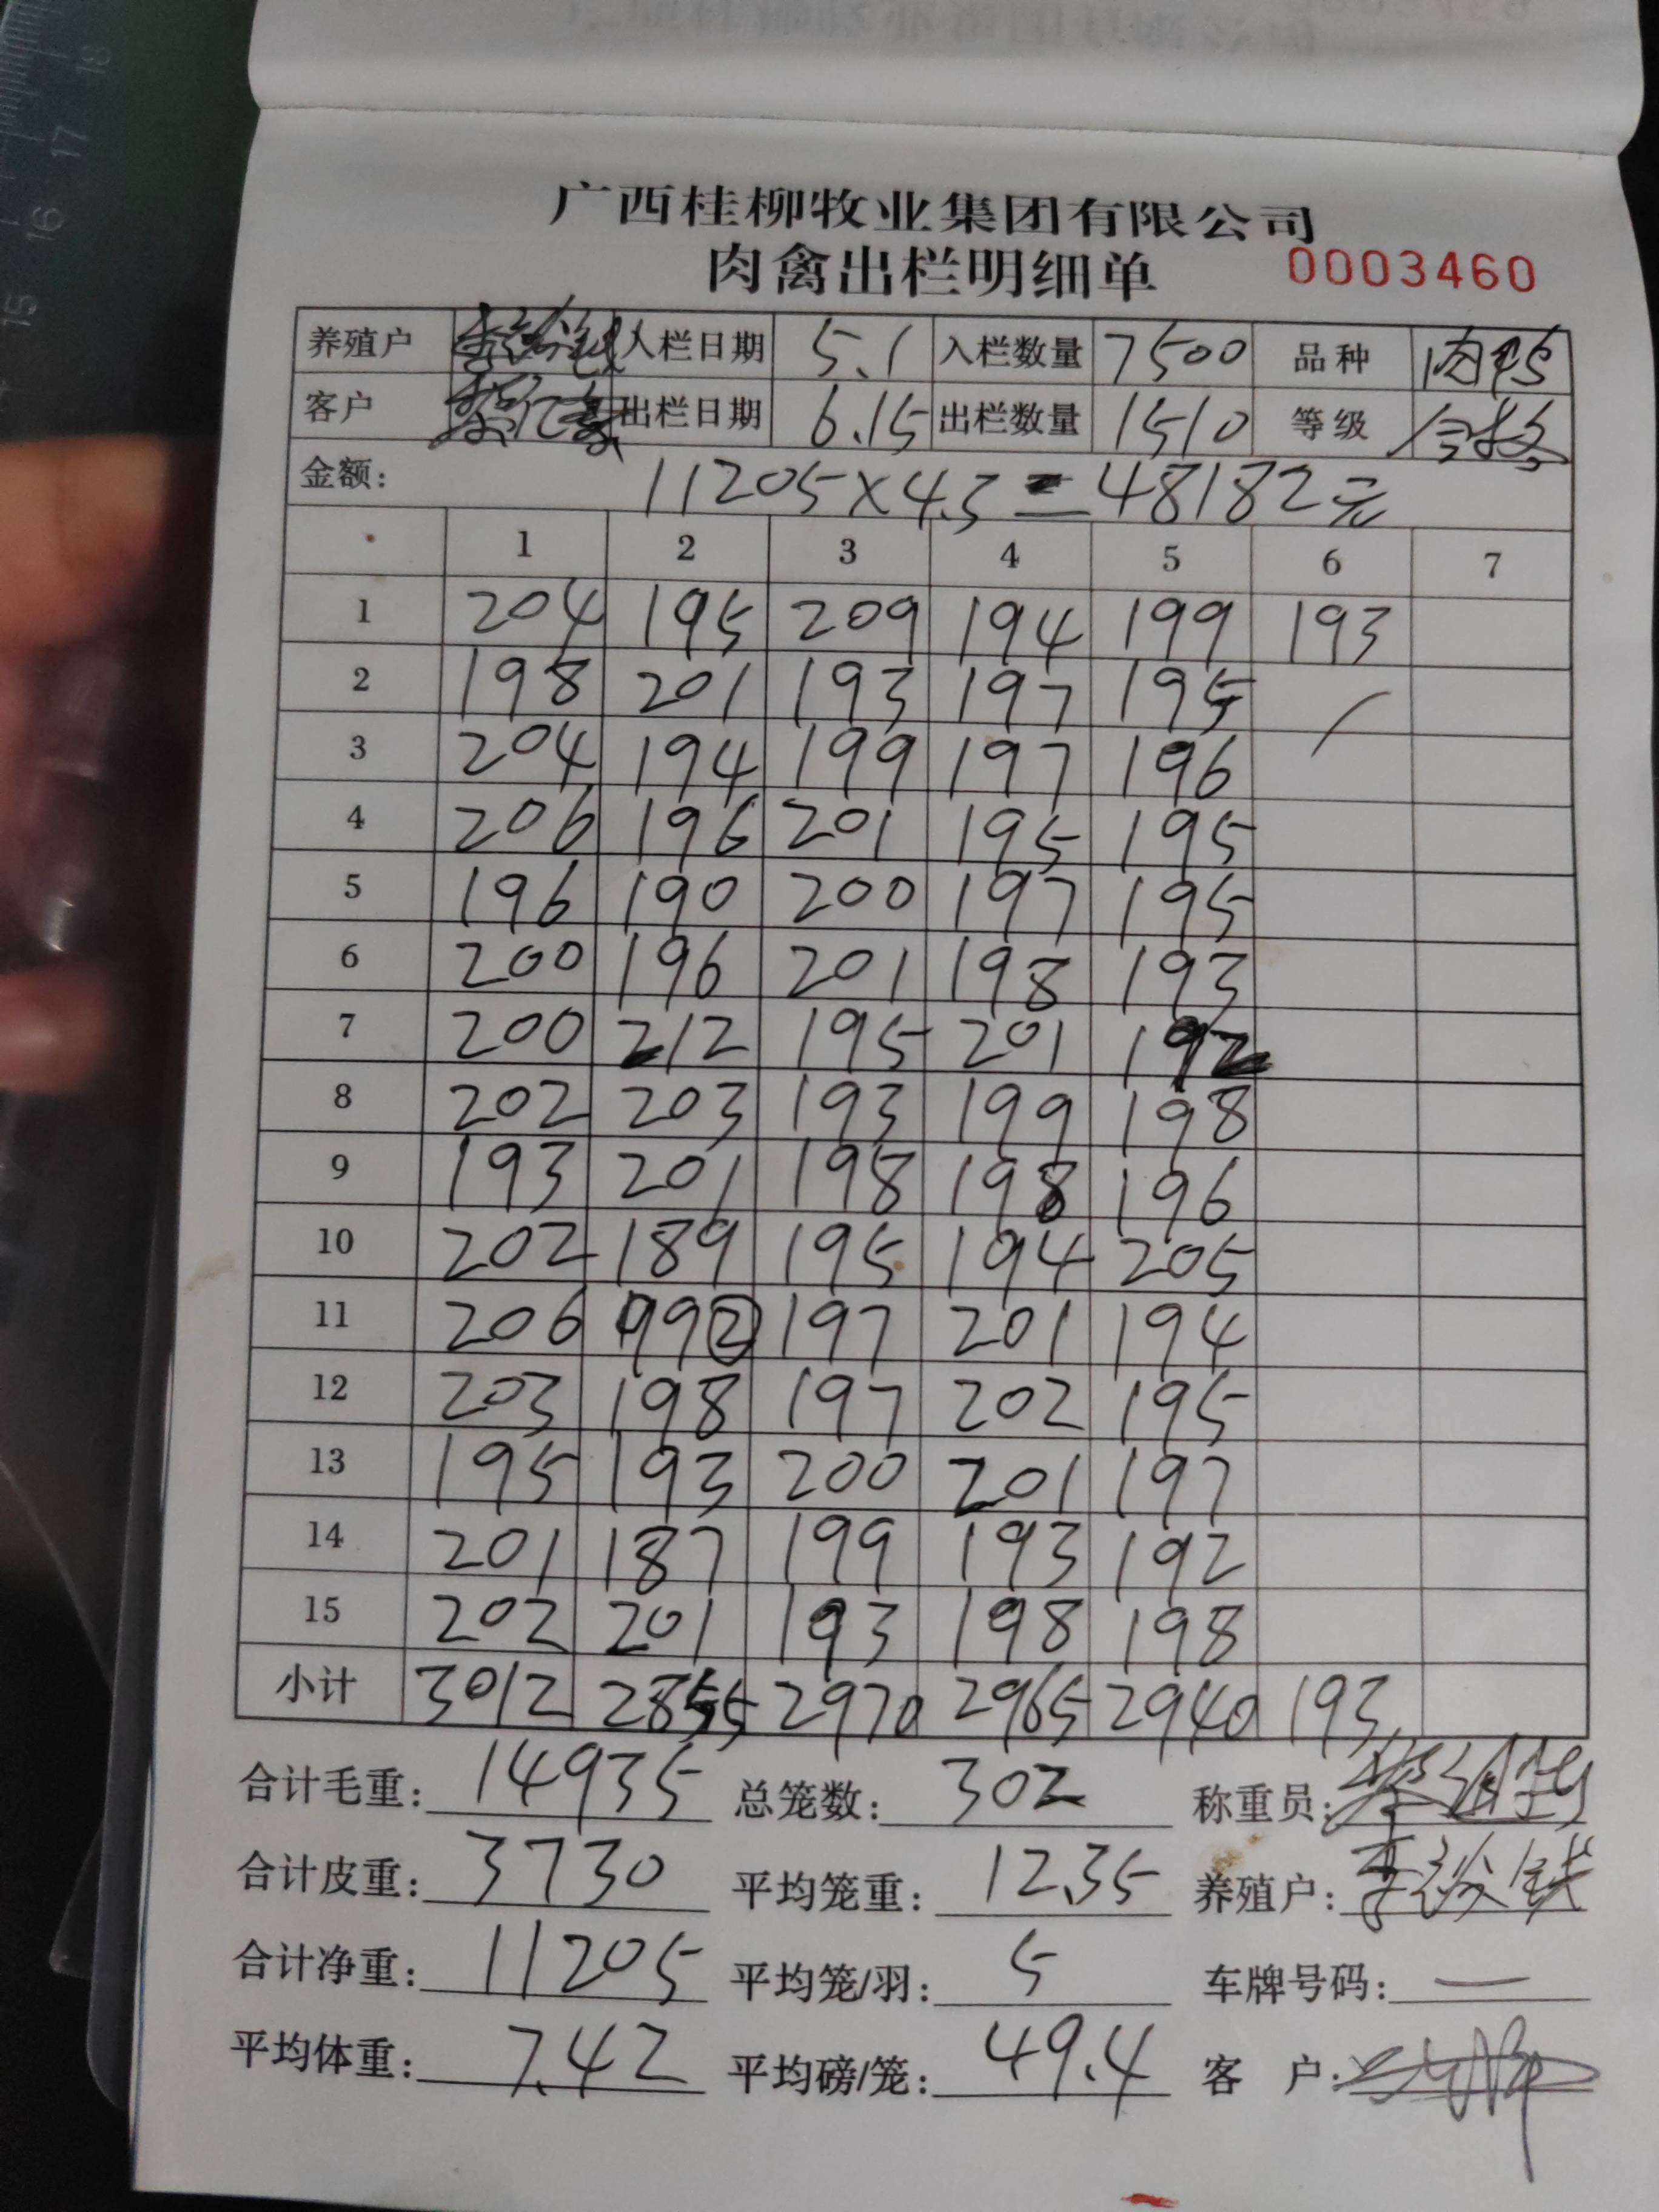 广西桂柳牧业集团有限公司
肉禽出栏明细单 0003460
养殖户 入栏日期 5.1 入栏数量 7500 品种 肉鸭
客户 出栏日期 6.15 出栏数量 1510 等级 合格
金额: 11205×4.3=48182元
1 2 3 4 5 6 7
1 204 195 209 194 199 193
2 198 201 193 197 195
3 204 194 199 197 196
4 206 196 201 195 195
5 196 190 200 197 195
6 200 196 201 198 193
7 200 212 195 201 192
8 202 203 193 199 198
9 193 201 198 198 196
10 202 189 195 194 205
11 206 99② 197 201 194
12 203 198 197 202 195
13 195 193 200 201 197
14 201 187 199 193 192
15 202 201 193 198 198
小计 3012 2855 2970 2965 2940 193
合计毛重: 14935 总笼数: 302 称重员:
合计皮重: 3730 平均笼重: 12.35 养殖户:
合计净重: 11205 平均笼/羽: 5 车牌号码: —
平均体重: 7.42 平均磅/笼: 49.4 客 户:
15 16 17 18